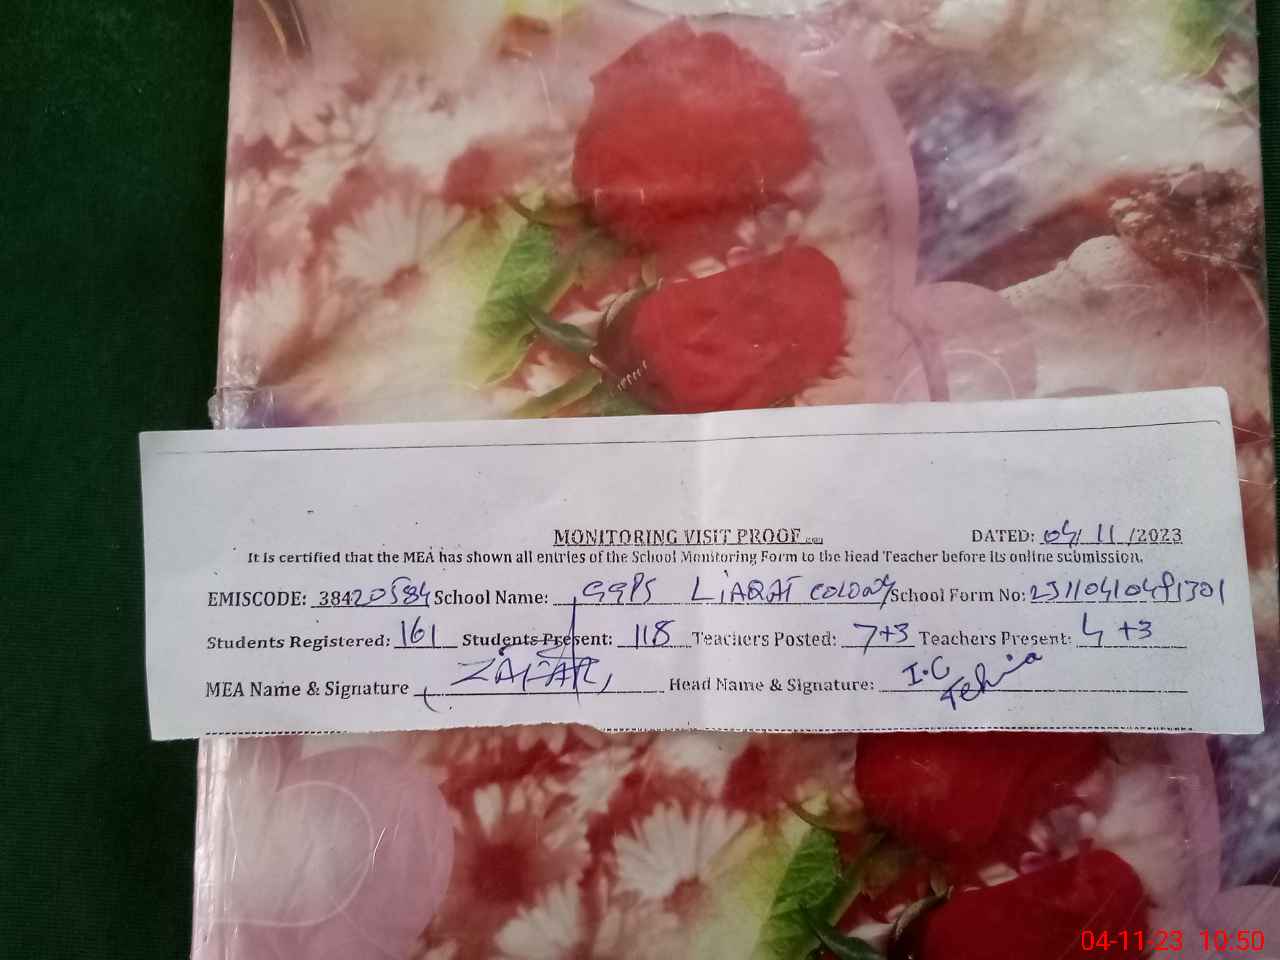 MONITORING VISIT PROOF DATED: 04/11/2023
It is certified that the MEA has shown all entries of the School Monitoring Form to the Head Teacher before its online submission.
EMISCODE: 38420584 School Name: GGPS LIAQAT COLONY School Form No:
Students Registered: 161 Students Present: 118 Teachers Posted: 7+3 Teachers Present: 4+3
MEA Name & Signature ZAFAR Head Name & Signature: I.C
04-11-23 10:50